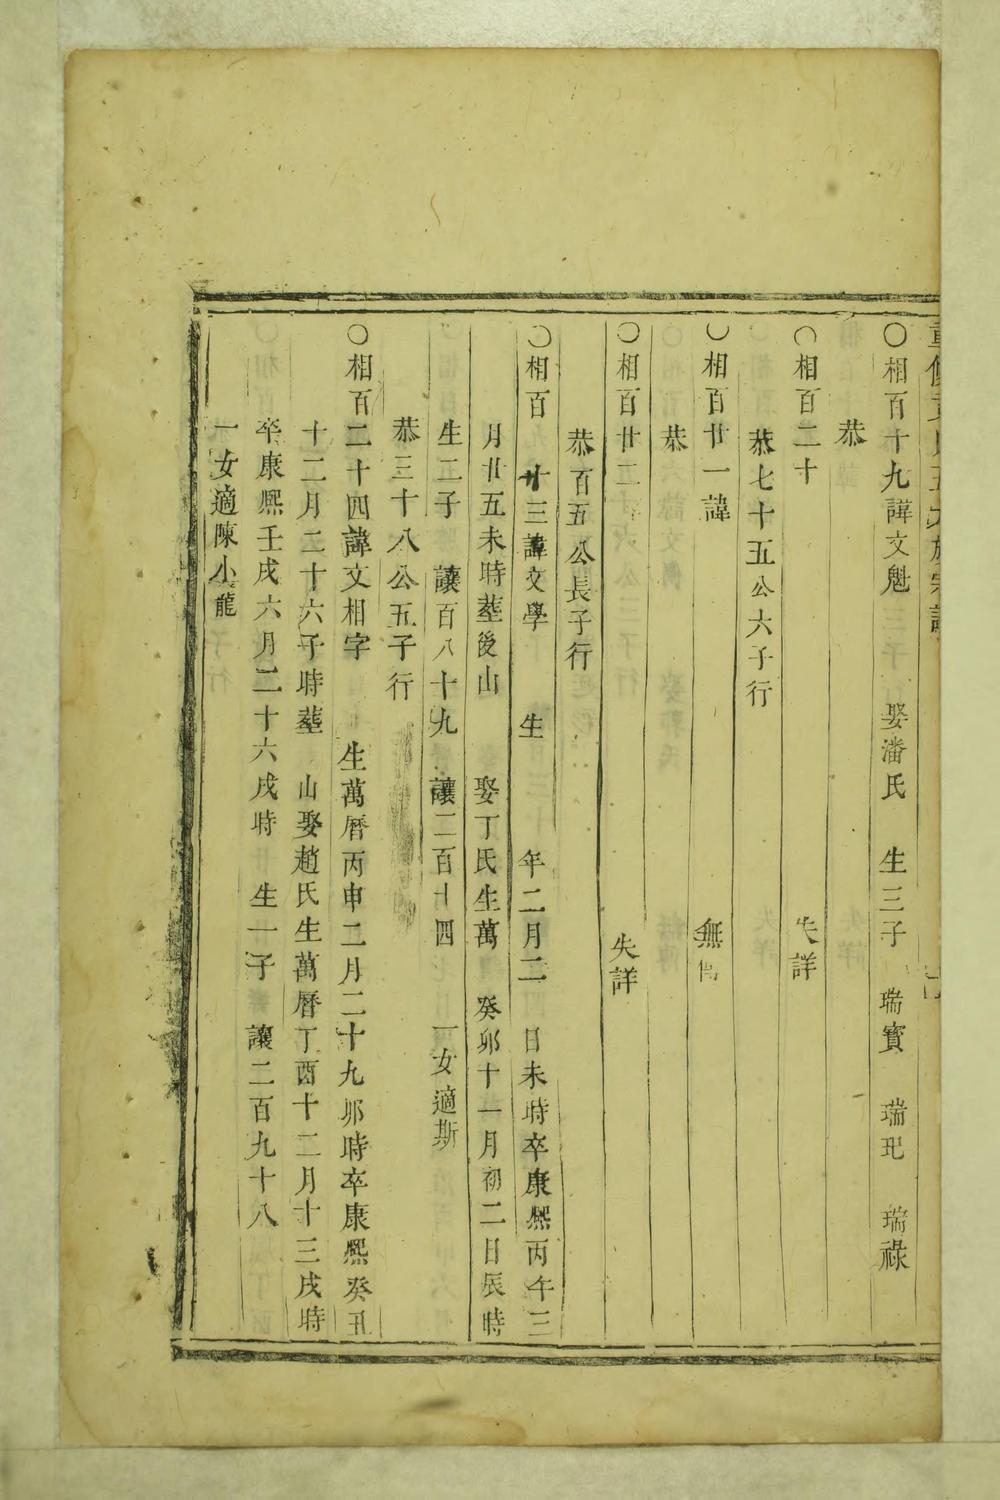 〇相百十九諱文魁 娶潘氏 生三子 瑞寳 瑞玘 瑞祿
恭
〇相百二十 失詳
恭七十五公六子行
〇相百廿一諱 無傳
恭
〇相百廿二 失詳
恭百五公長子行
〇相百 十三諱文學 生 年二月二 日未時卒康熙丙午三
月廿五未時塟後山 娶丁氏生萬 癸卯十一月初二日辰時
生二子 讓百八十九 讓二百十四 一女適斯
恭三十八公五子行
〇相百二十四諱文相字 生萬曆丙申二月二十九卯時卒康熙癸丑
十二月二十六子時塟 山娶趙氏生萬曆丁酉十二月十三戌時
卒康熙壬戌六月二十六戌時 生一子 讓二百九十八
一女適陳小龍